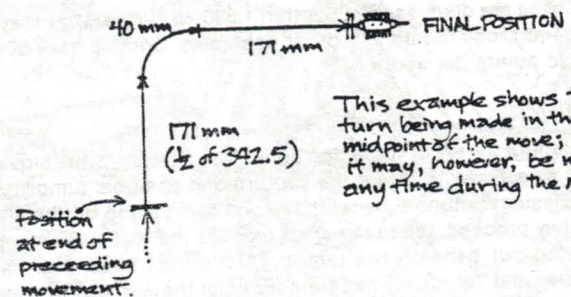 40 mm
171 mm
FINAL POSITION
171 mm
(½ of 342.5)
This example shows
turn being made in th
midpoint of the move;
it may, however, be
any time during the
Position
at end of
preceeding
movement.